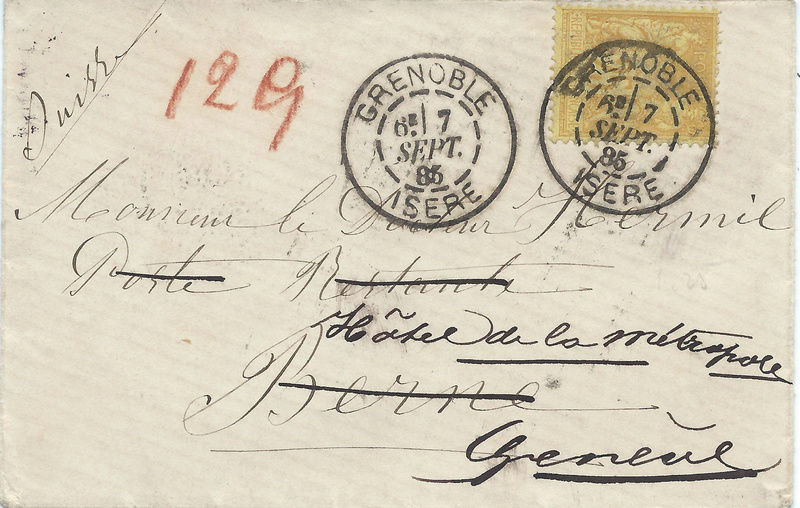 Suisse
129
GRENOBLE
6E 7
SEPT.
85
ISERE
GRENOBLE
6E 7
SEPT.
85
ISERE
Monsieur le Docteur Hermil
Poste Restante
Hôtel de la métropole
Berne
Genève